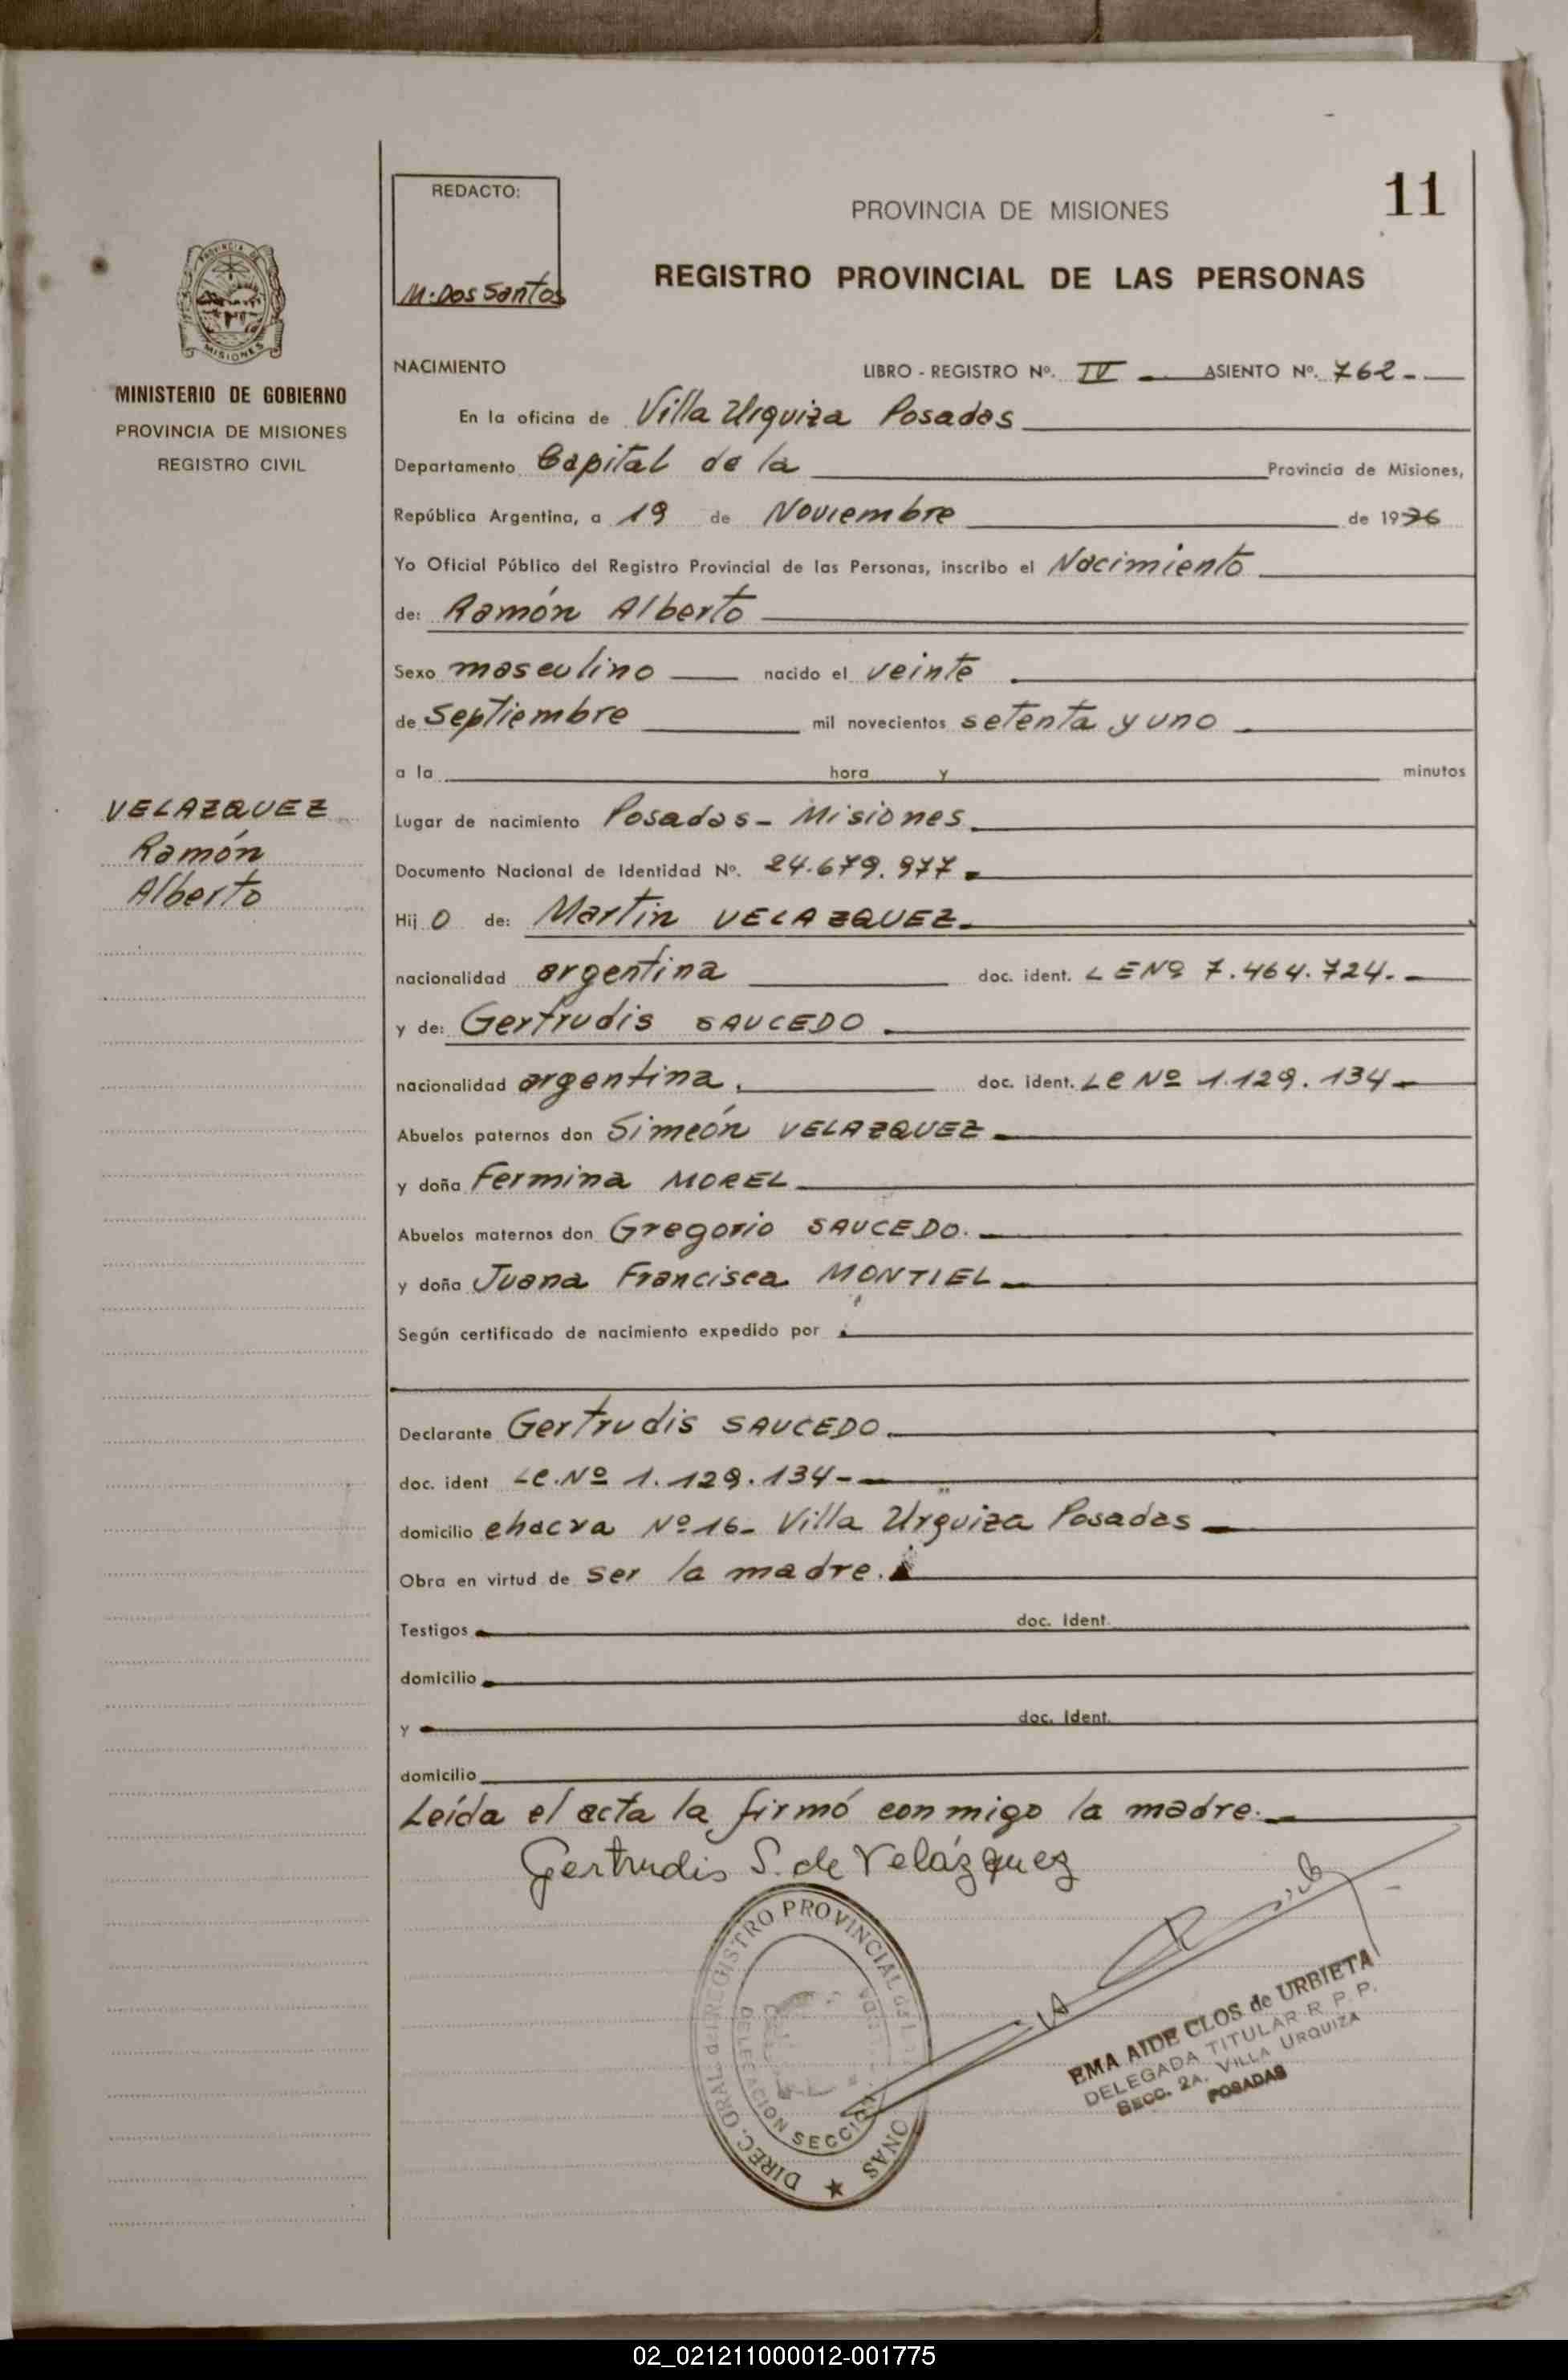 11
REDACTO:
M. Dos Santos
PROVINCIA DE MISIONES
REGISTRO PROVINCIAL DE LAS PERSONAS
PROVINCIA DE
MISIONES
MINISTERIO DE GOBIERNO
PROVINCIA DE MISIONES
REGISTRO CIVIL
NACIMIENTO LIBRO - REGISTRO Nº. IV ASIENTO Nº. 762-
En la oficina de Villa Urquiza Posadas
Departamento Capital de la Provincia de Misiones,
República Argentina, a 19 de Noviembre de 1976
Yo Oficial Público del Registro Provincial de las Personas, inscribo el Nacimiento
de: Ramón Alberto
Sexo masculino nacido el veinte
de Septiembre mil novecientos setenta y uno
a la hora y minutos
VELAZQUEZ
Ramón
Alberto
Lugar de nacimiento Posadas - Misiones
Documento Nacional de Identidad Nº. 24.679.977
Hij o de: Martin VELAZQUEZ
nacionalidad argentina doc. ident. LENº 7.464.724.-
y de: Gertrudis SAUCEDO
nacionalidad argentina. doc. ident. Le Nº 1.129.134
Abuelos paternos don Simeón VELAZQUEZ
y doña Fermina MOREL
Abuelos maternos don Gregorio SAUCEDO.
y doña Juana Francisca MONTIEL
Según certificado de nacimiento expedido por
Declarante Gertrudis SAUCEDO
doc. ident Le.Nº 1.129.134-
domicilio chacra Nº 16- Villa Urquiza Posadas
Obra en virtud de ser la madre.
Testigos doc. Ident.
domicilio
y doc. Ident.
domicilio
Leída el acta la firmó conmigo la madre.
Gertrudis S. de Velázquez
DIREC. GRAL. del REGISTRO PROVINCIAL de ONAS
DELEGACION SECCION
EMA AIDE CLOS de URBIETA
DELEGADA TITULAR R. P. P.
SECC. 2A. VILLA URQUIZA
POSADAS
02_021211000012-001775